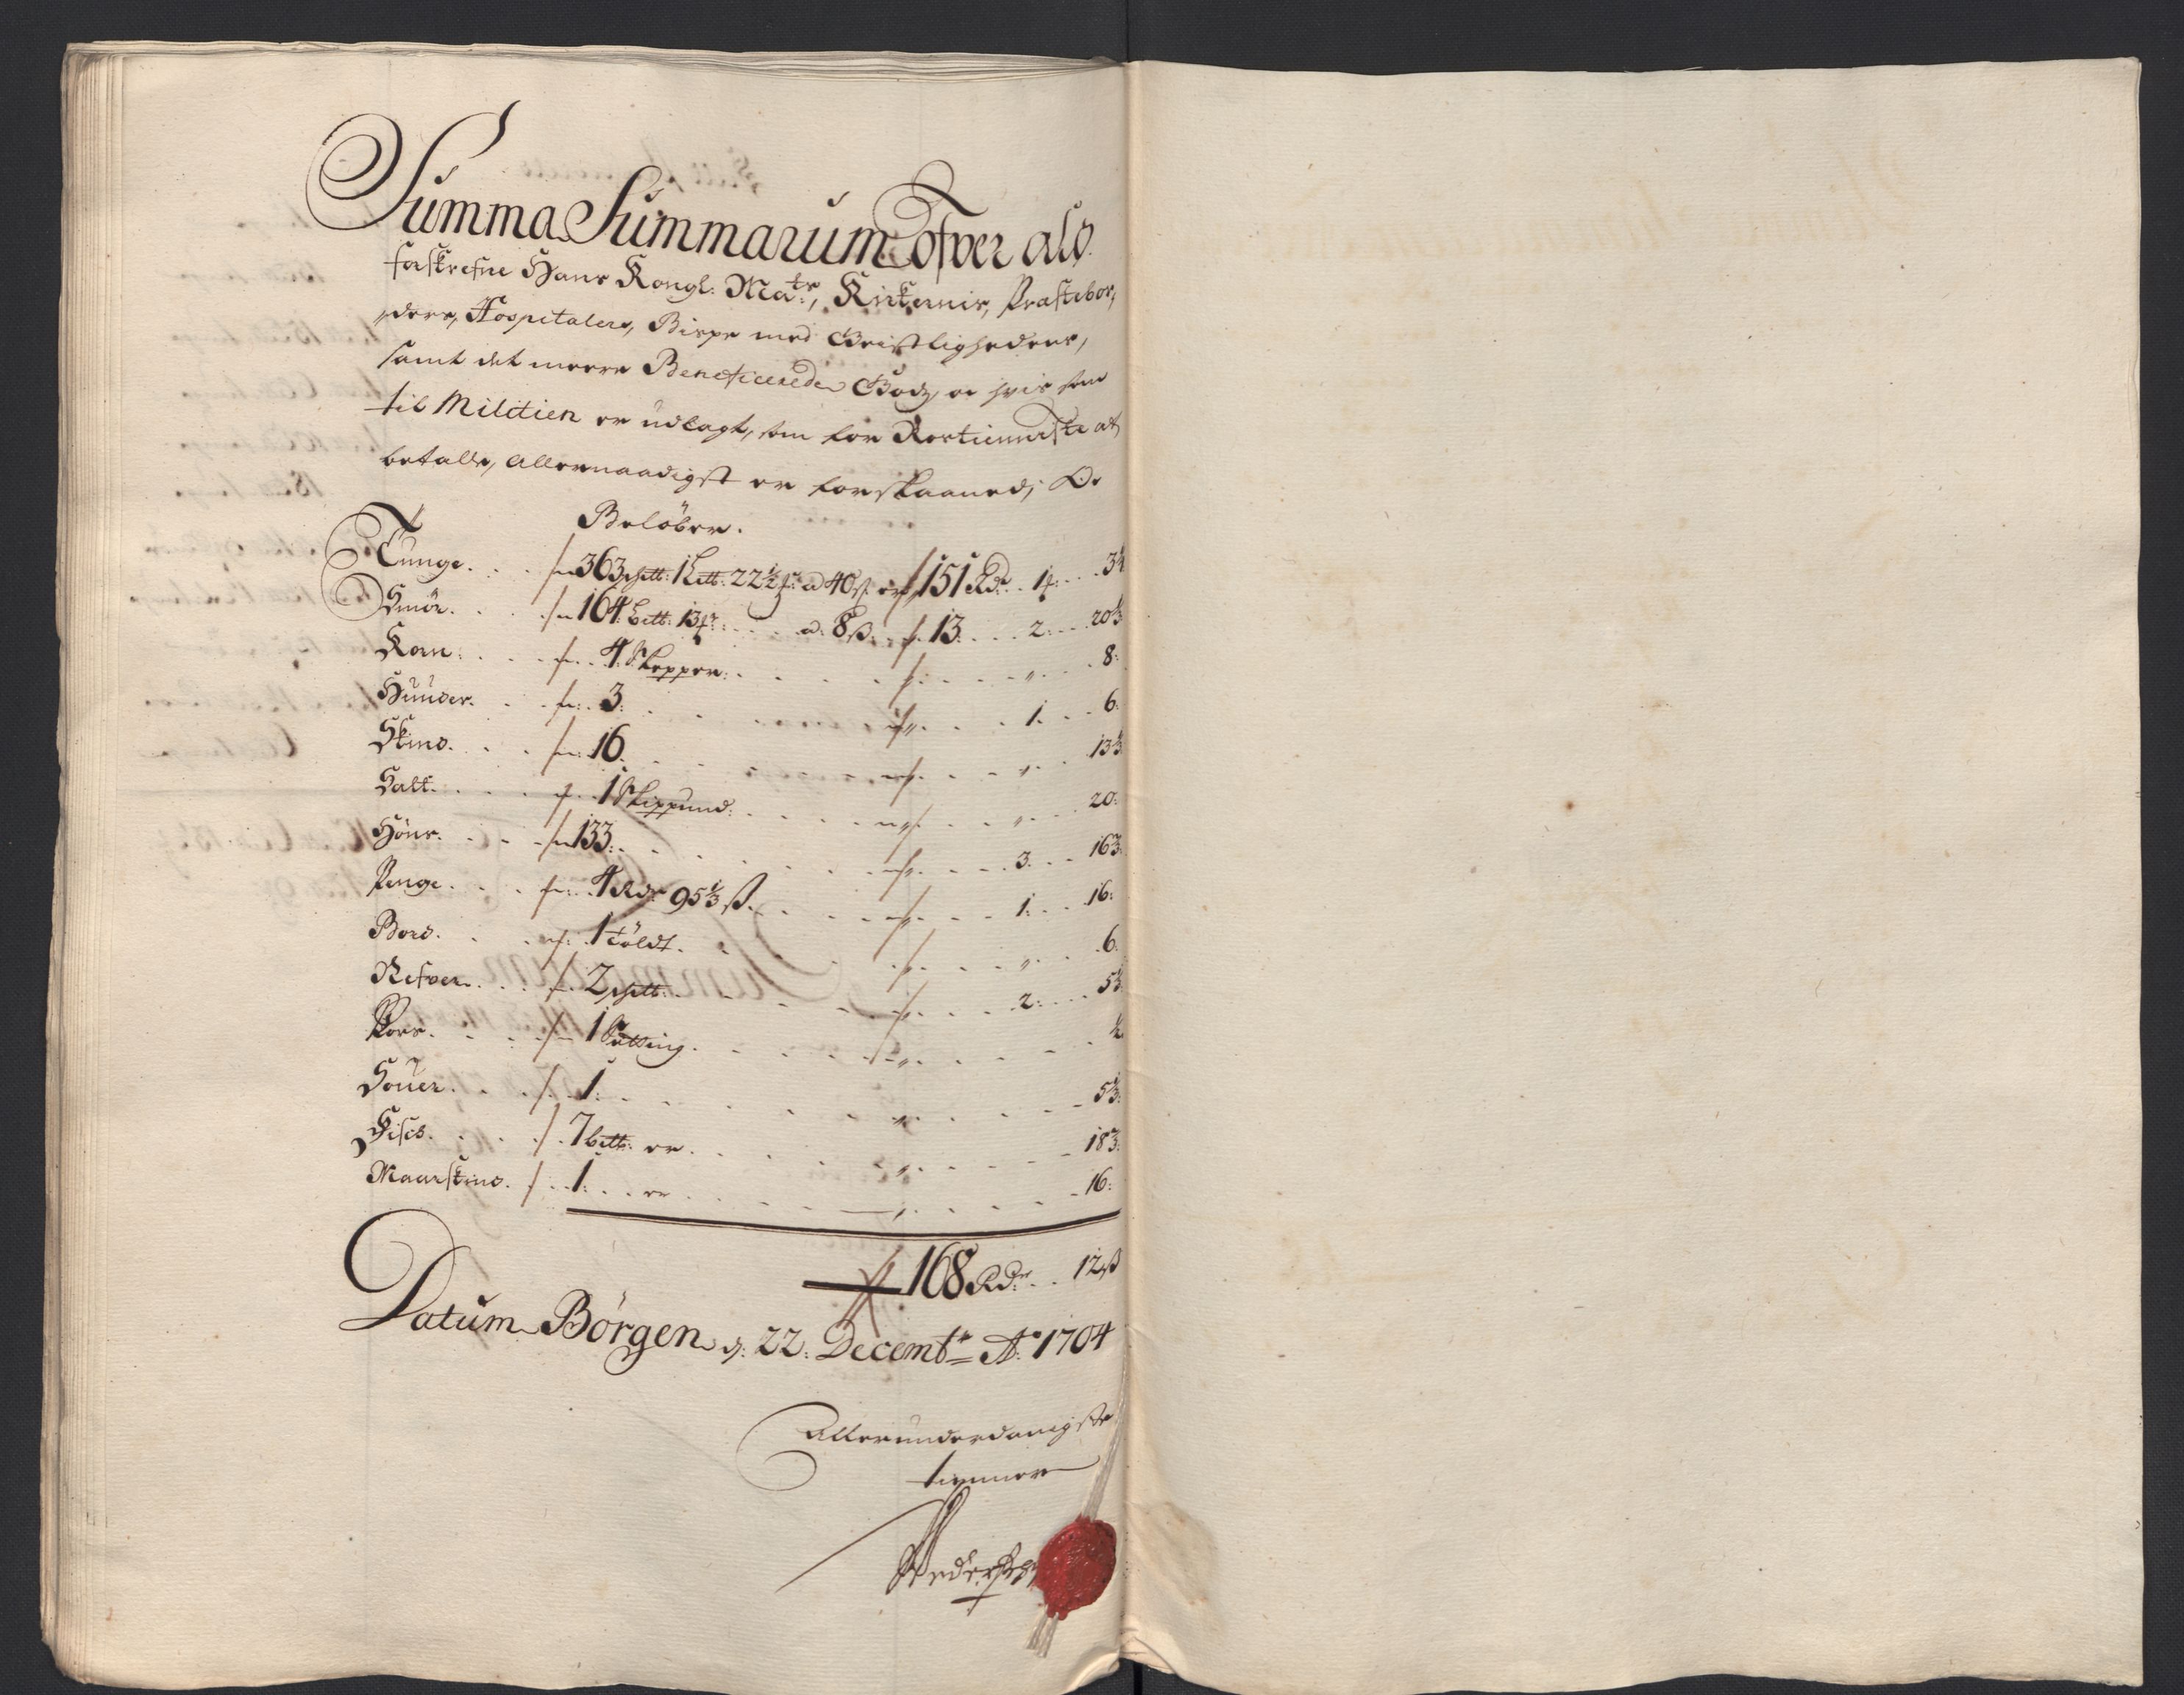 Summa Summarum Ofver alt
forskrefne Hans Kongl: May:ts, Kirkernis, Præstebor,
ders, Hospitalers, Bispe med Geistlighedens,
samt det meere Beneficerede Godz, oc hvis som
til Militien er udlagt, som for Rostienniste at
betalle, Allernaadigst er forskaaned; Oc
Beløber.
Tunge . . . 363 ... 1 ... 22½ ... a 40 s er 151 Rdr . 1 . .
Smør . . . 164 ... 13 ... a 8 s . 13 . . . 2 . . 20⅓
Korn . . . 4 Skepper . . . 8
Huuder . . . 3 . . . 1 . . 6
Skind . . . 16 . . . 13⅓
Salt . . . 1 Skippund . . . 20
Høns . . . 133 . . . 3 . . 16⅓
Penge . . . 4 Rdr 95⅓ s . . . 1 . . 16
Bord . . . 1 Tøldt . . . 6
Nefver . . . 2 . . . 2 . . 5⅓
Pors . . . 1 Sætting . . .
Souer . . . 1 . . . 5⅓
Fisch . . . 7 ... er . . . 18⅔
Maarskind . . . 1 . . er . . . 16
168 Rdr . . 12 s
Datum Børgen d: 22: Decembr Ao 1704
Allerunderdanigste
tienner